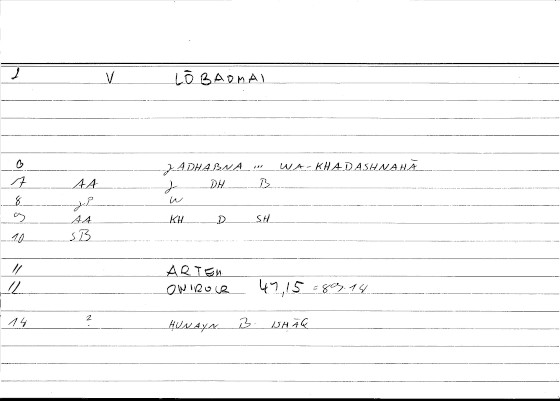 1 V LŌBAOMAI
6 JADHABNA ... WA-KHADASHNAHĀ
7 AA J DH B
8 JP W
9 AA KH D SH
10 SB
11 ARTEM
12 ONIROCR 47,15 = 89.14
14 ? HUNAYN B